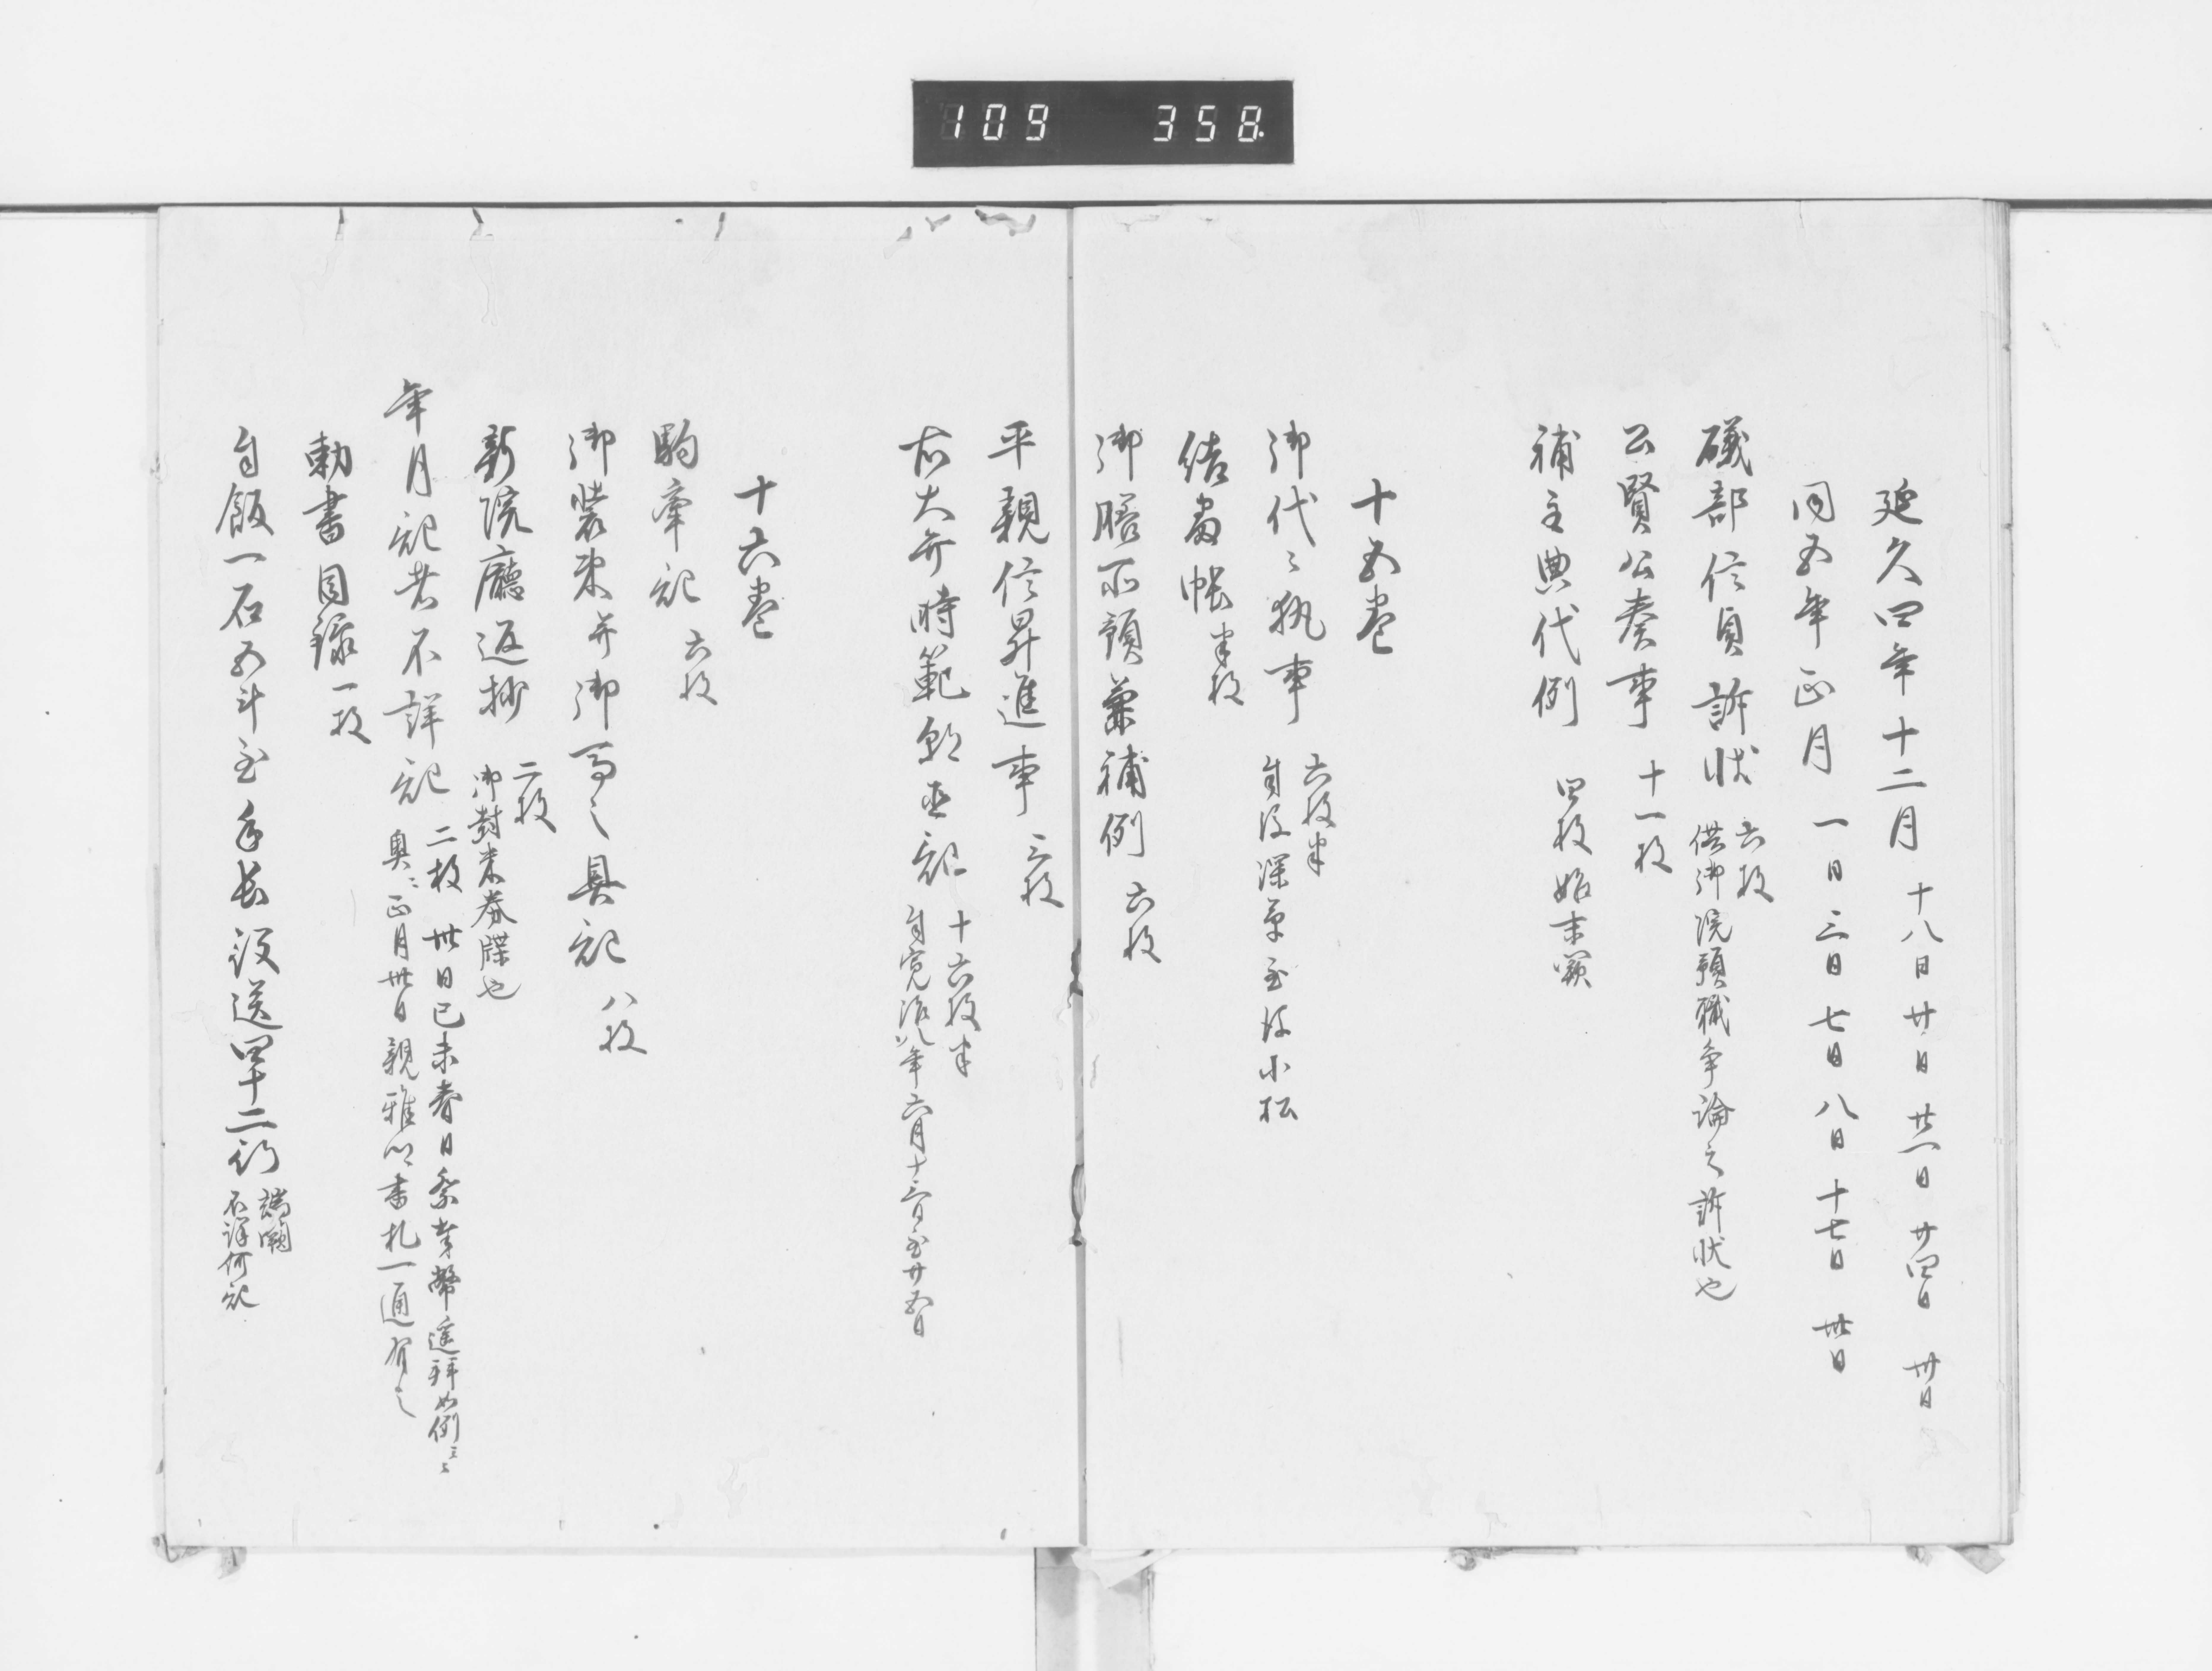 109 358
延久四年十二月 十八日 廿日 廿一日 廿四日 卅日
同五年正月 一日 三日 七日 八日 十七日 卅日
磯部信貞訴状 六枚
供御院預職争論之訴状也
公賢公奏事 十一枚
補主典代例 四枚始末闕
十五巻
御代々執事 六枚半
自後深草至後小松
結番帳 半枚
御膳所預兼補例 六枚
平親信昇進事 三枚
右大弁時範朝臣記 十六枚半
自寛治八年六月十三日至廿五日
十六巻
駒牽記 六枚
御装束并御馬之具記 八枚
新院廳返抄 二枚
御封米券牒也
年月記者不詳記 二枚 卅日己未春日祭奉幣遙拝如例云々
奥ニ正月卅日親雅以書札一通有之
勅書目録 一枚
自飯一石五斗至手長役送四十二行 端闕
不詳何記